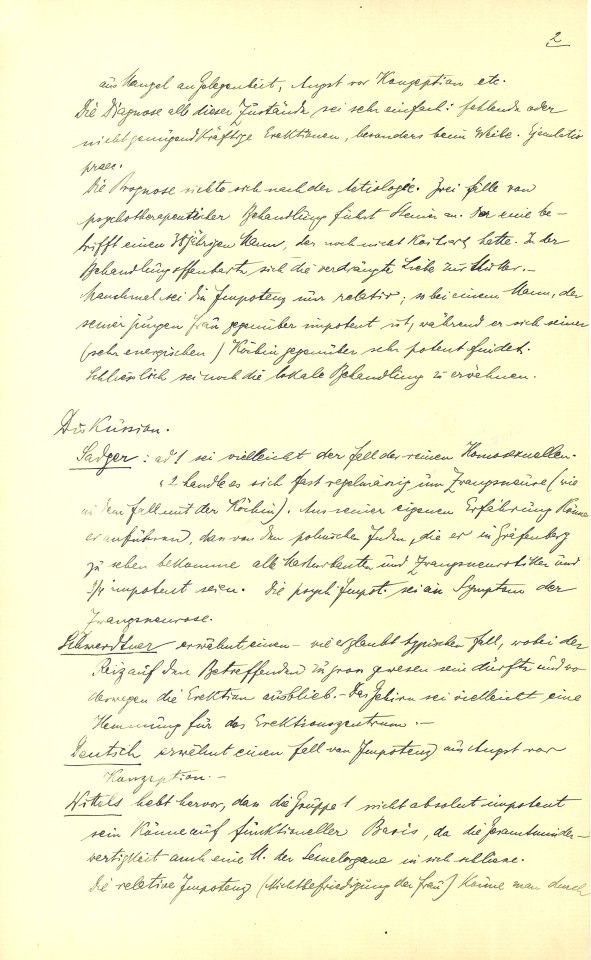 2
aus Mangel an Gelegenheit, Angst vor Konzeption etc.
Die Diagnose all dieser Zustände sei sehr einfach: fehlende oder
nicht genügend kräftige Erektionen, besonders beim Weibe. Ejaculatio
praec.
Die Prognose richte sich nach der Aetiologie. Zwei Fälle von
psychotherapeutischer Behandlung führt Steiner an. Der eine be-
trifft einen 38jährigen Mann, der noch nicht Koitiert hatte. In der
Behandlung offenbarte sich die verdrängte Liebe zur Mutter.—
Manchmal sei die Impotenz nur relativ; so bei einem Mann, der
seiner jungen Frau gegenüber impotent ist, während er sich seiner
(sehr energischen) Köchin gegenüber sehr potent findet.
Schliesslich sei noch die lokale Behandlung zu erwehnen.
Diskussion.
Sadger: ad 1 sei vielleicht der Fall der reinen Homosexuellen.
" 2 handle es sich fast regelmässig um Zwangsneurose (wie
in dem Fall mit der Köchin). Aus seiner eigenen Erfahrung könne
er anführen, dass von den polnischen Juden, die er in Gräfenberg
zu sehen bekomme alle Masturbanten und Zwangsneurotiker und
impotent seien. Die psych. Impot. sei ein Symptom der
Zwangsneurose.
Schwerdtner erwähnt einen — wie er glaubt typischen Fall, wobei der
Reiz auf den Betreffenden zu gross gewesen sein dürfte und wo
deswegen die Erektion ausblieb.— Das Gehirn sei vielleicht eine
Hemmung für das Erektionszentrum.—
Deutsch erwähnt einen Fall von Impotenz aus Angst vor
Konzeption.—
Wittels hebt hervor, dass die Gruppe 1 nicht absolut impotent
sein könne auf funktioneller Basis, da die Gesamtminder-
wertigkeit auch eine M. der Sexualorgane in sich schliesse.
Die relative Impotenz (Nichtbefriedigung der Frau) könne man durch